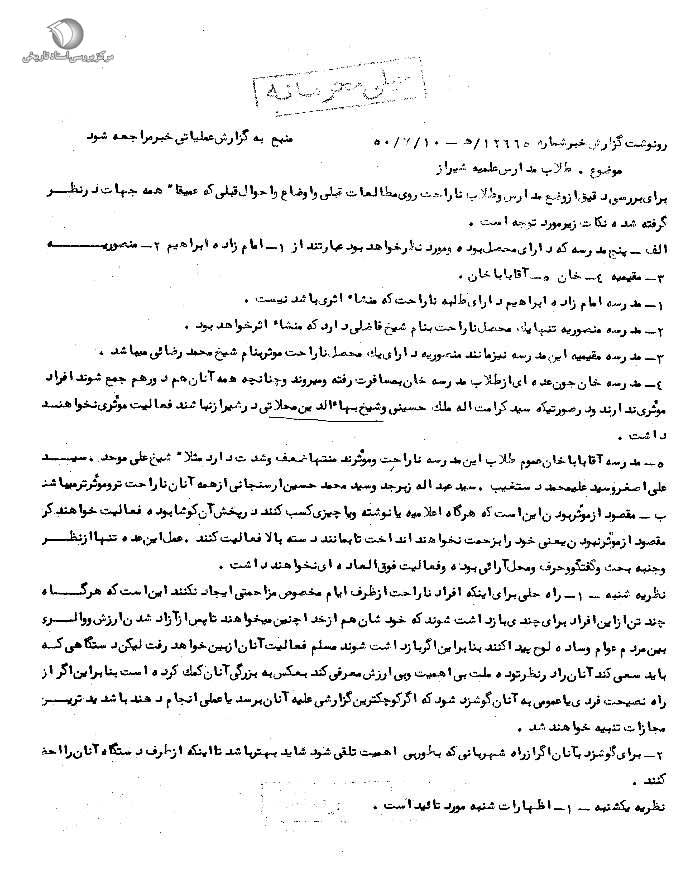 مرکز بررسی اسناد تاریخی
خیلی محرمانه
رونوشت گزارش خبر شماره ۱۲۶۶۵/ه‍ - ۵۰/۷/۱۰ منبع به گزارش عملیاتی خبر مراجعه شود
موضوع . طلاب مدارس علمیه شیراز
برای بررسی دقیق از وضع مدارس و طلاب ناراحت روی مطالعات قبلی و اوضاع و احوال قبلی که عمیقا" همه جهات در نظر
گرفته شده نکات زیر مورد توجه است .
الف – پنج مدرسه که دارای محصل بوده و مورد نظر خواهد بود عبارتند از ۱– امام زاده ابراهیم ۲– منصوریه
۳– مقیمیه ۴– خان ۵– آقاباباخان .
۱– مدرسه امام زاده ابراهیم دارای طلبه ناراحت که منشاء اثری باشد نیست .
۲– مدرسه منصوریه تنها یک محصل ناراحت بنام شیخ فاضلی دارد که منشاء اثر خواهد بود .
۳– مدرسه مقیمیه این مدرسه نیز مانند منصوریه دارای یک محصل ناراحت موثر بنام شیخ محمد رضائی میباشد .
۴– مدرسه خان چون عده ای از طلاب مدرسه خان بمسافرت رفته و میروند و چنانچه همه آنان هم دور هم جمع شوند افراد
موثری ندارند و در صورتیکه سید کرامت اله ملک حسینی و شیخ بهاءالدین محلاتی در شیراز نباشند فعالیت موثری نخواهند
داشت .
۵– مدرسه آقاباباخان عموم طلاب این مدرسه ناراحت و موثرند منتها ضعف و شدت دارد مثلا" شیخ علی موحد . سید
علی اصغر و سید علیمحمد دستغیب . سید عبداله زبرجد و سید محمد حسین ارسنجانی از همه آنان ناراحت تر و موثرتر میباشند
ب – مقصود از موثر بودن این است که هرگاه اعلامیه یا نوشته و یا چیزی کسب کنند در پخش آن کوشا بوده فعالیت خواهند کر
مقصود از موثر نبودن یعنی خود را بزحمت نخواهند انداخت تا بمانند دسته بالا فعالیت کنند . عمل این عده تنها از نظر
و جنبه بحث و گفتگو و حرف و محل آرائی بوده و فعالیت فوق العاده ای نخواهند داشت .
نظریه شنبه – ۱– راه حلی برای اینکه افراد ناراحت از ظرف ایام مخصوص مزاحمتی ایجاد نکنند این است که هرگاه
چند تن از این افراد برای چندی بازداشت شوند که خود شان هم از خدا چنین میخواهند تا پس از آزاد شدن ارزش و والری
بین مردم عوام و ساده لوح پیدا کنند بنابراین اگر بازداشت شوند مسلم فعالیت آنان از بین خواهد رفت لیکن دستگاهی که
باید سعی کند آنان را در نظر توده ملت بی اهمیت و بی ارزش معرفی کند بعکس به بزرگی آنان کمک کرده است بنابراین اگر از
راه نصیحت فردی یا عمومی به آنان گوشزد شود که اگر کوچکترین گزارشی علیه آنان برسد یا عملی انجام دهند باشدیدترین
مجازات تنبیه خواهند شد .
۲– برای گوشزد بآنان اگر از راه شهربانی که بطور بی اهمیت تلقی شود شاید بهتر باشد تا اینکه از طرف دستگاه آنان را احض
کنند .
نظریه یکشنبه – ۱– اظهارات شنبه مورد تائید است .